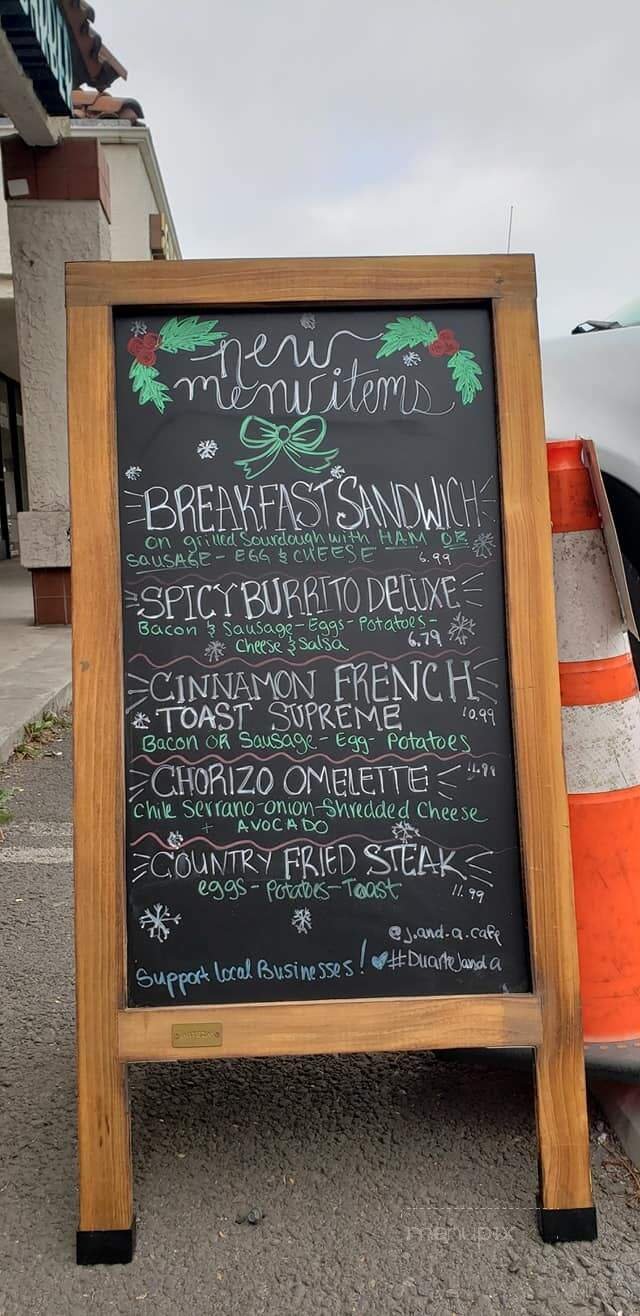 new
menu items
BREAKFAST SANDWICH
on grilled Sourdough with HAM OR
SAUSAGE - EGG & CHEESE 6.99
SPICY BURRITO DELUXE
Bacon & Sausage - Eggs - Potatoes -
Cheese & Salsa 6.79
CINNAMON FRENCH
TOAST SUPREME 10.99
Bacon OR Sausage - Egg - Potatoes
CHORIZO OMELETTE 11.99
Chile Serrano - onion - Shredded Cheese
+ AVOCADO
COUNTRY FRIED STEAK
eggs - Potatoes - Toast
11.99
@j.and.a.cafe
Support local Businesses! #DuarteJanda
menupix